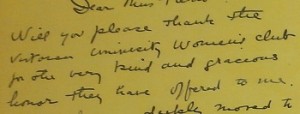 Dear Miss
Will you please thank the
Victorian University Women's club
for the very kind and gracious
honor they have offered to me.
deeply moved to